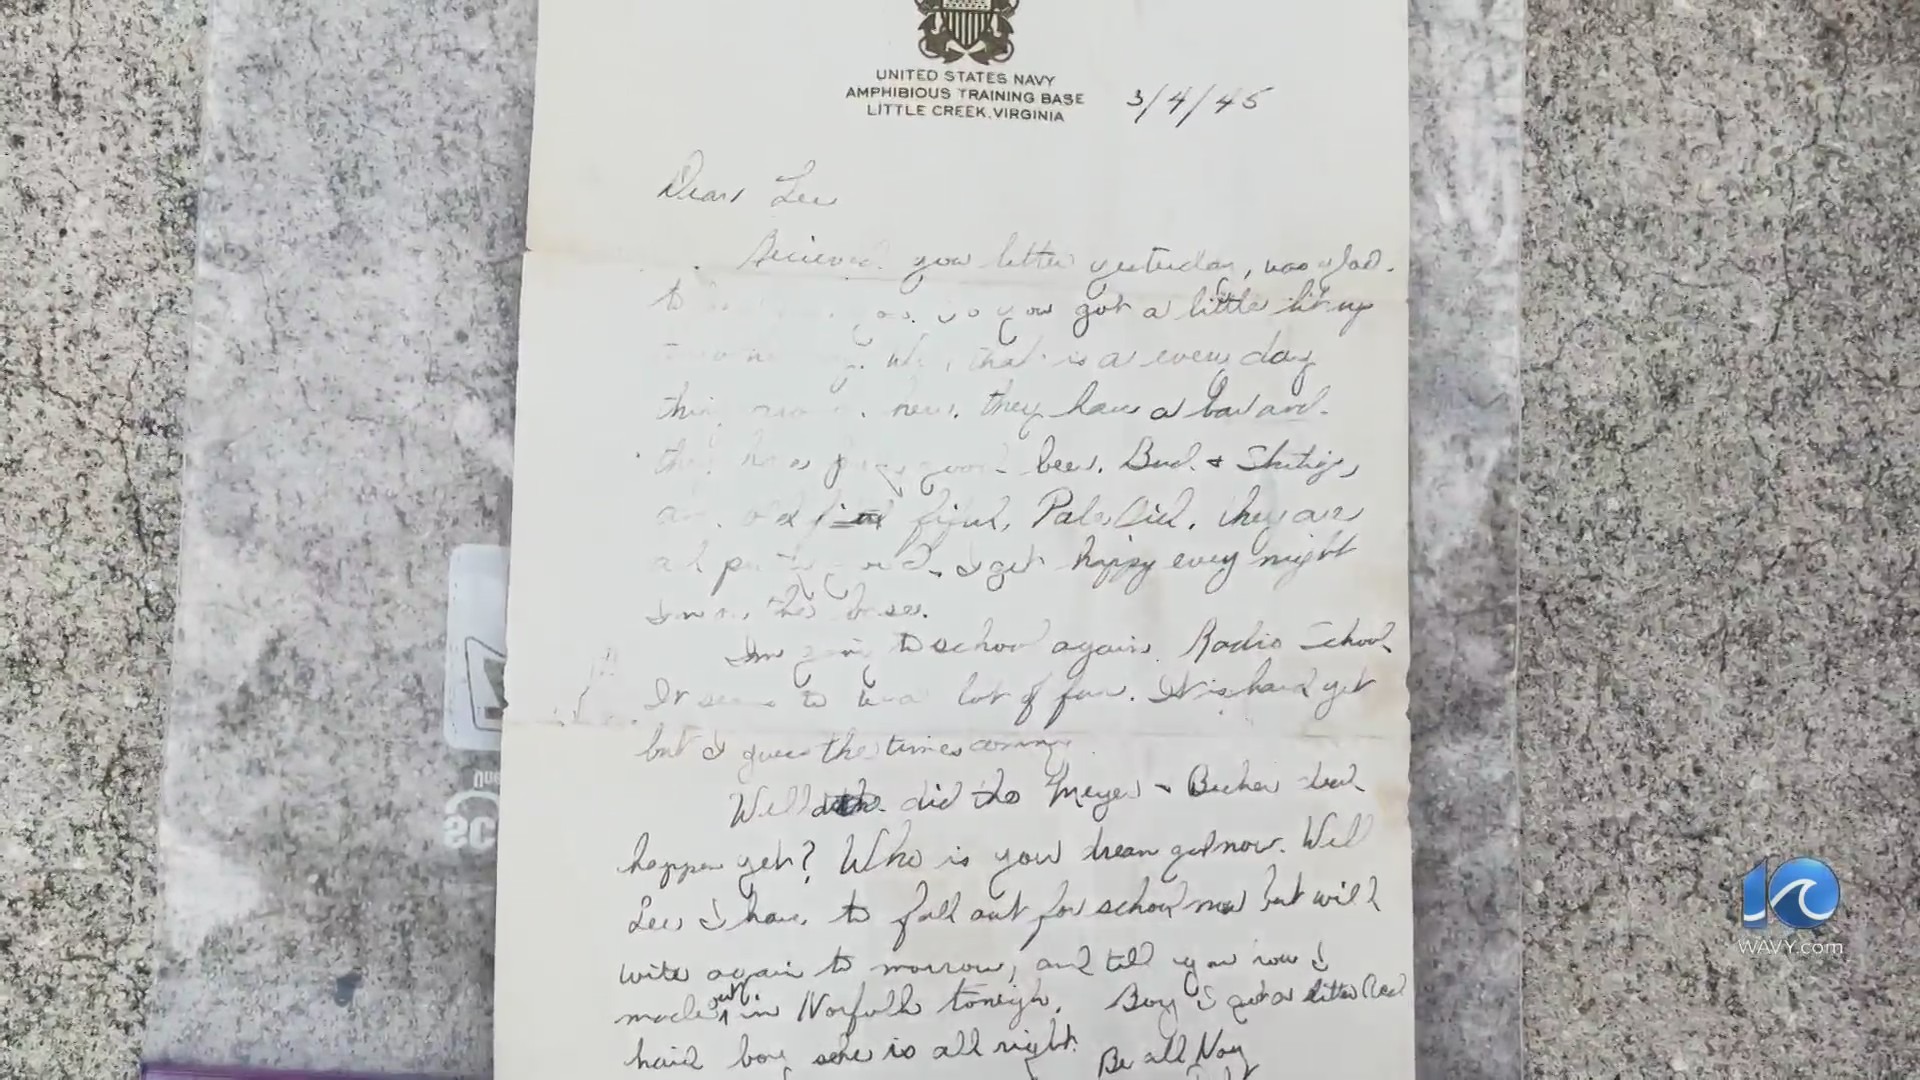 UNITED STATES NAVY
AMPHIBIOUS TRAINING BASE
LITTLE CREEK, VIRGINIA
3/4/45
Dear Lee
Recieved your letter yesterday, was glad
to you. So you got a little lit up
that is a every day
thing now. they have a bar and
they have good beer. Bud. &
and old Pabst. they are
all I get happy every night
I'm in the base.
I'm going to school again. Radio School
It seems to be a lot of fun. It is hard yet
but I guess the times coming.
Well did the Meyer & deal
happen yet? Who is your dream gal now. Well
Lee I have to fall out for school now but will
write again to morrow, and tell you how I
made out in Norfolk tonigh. Boy I got a little Red
haid boy she is all right.
Be all Navy
10
WAVY.com